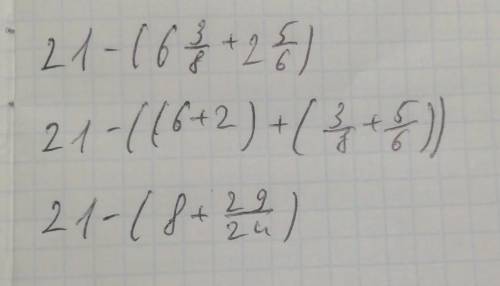 21-(6 3/8+2 5/6)
21-((6+2)+(3/8+5/6))
21-(8+29/24)